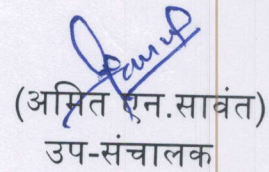 (अमित एन.सावंत)
उप-संचालक